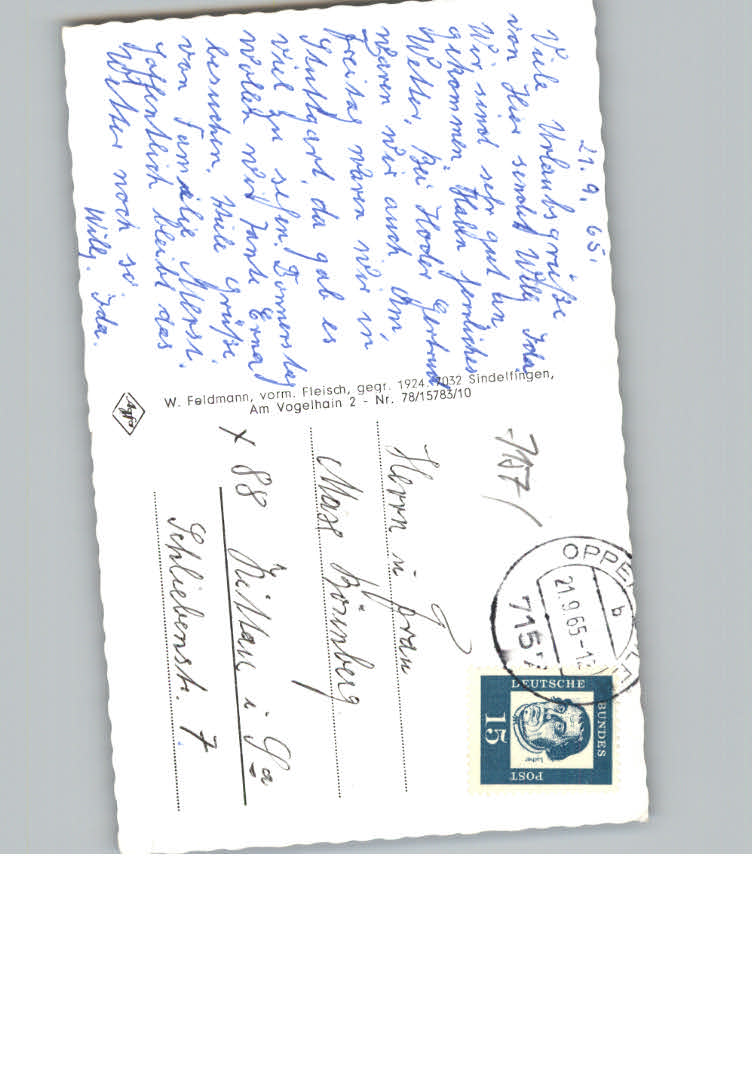 21. 9. 65.
Viele Urlaubsgrüße
von Hier sendet Willy Ida
Wir sind sehr gut an
gekommen, Haben herrliches
Wetter, Bei Gertrud
waren wir auch Am
freitag waren wir in
Stuttgart, da gab es
viel zu sehen. Donnerstag
wollen wir Tante Erna
besuchen. Viele Grüße
von Familie
Hoffentlich bleibt das
Wetter noch so
Willy. Ida.
W. Feldmann, vorm. Fleisch, gegr. 1924. 7032 Sindelfingen,
Am Vogelhain 2 - Nr. 78/15783/10
Agfa
-7157/
Herrn u Frau
Max Börnberg
X 88 Zittau i. Sa
Schliebenstr. 7.
OPPE
b
21.9.65-12
7157
DEUTSCHE
BUNDES
POST
15
Luther